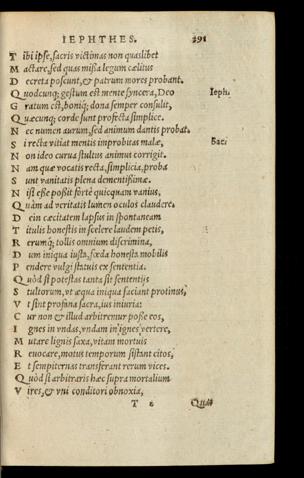 IEPHTHES. 291
Tibi ipse, sacris victimas non quaslibet
Mactare, sed quas missa legum cælitus
Decreta poscunt, & patrum mores probant.
Quodcunq; gestum est mente syncera, Deo Ieph.
Gratum est, boniq; dona semper consulit,
Quæcunq; corde sunt profecta simplice.
Nec numen aurum, sed animum dantis probat.
Si recta vitiat mentis improbitas malæ, Sac.
Non ideo curua stultus animus corrigit.
Nam quæ vocatis recta, simplicia, proba
Sunt vanitatis plena dementissimæ.
Nisi esse possit fortè quicquam vanius,
Quàm ad veritatis lumen oculos claudere,
Dein cæcitatem lapsus in spontaneam
Titulis honestis in scelere laudem petis,
Rerumq; tollis omnium discrimina,
Dum iniqua iusta, fœda honesta mobilis
Pendere vulgi statuis ex sententia.
Quòd si potestas tanta sit sententijs
Stultorum, vt æqua iniqua faciant protinus,
Vt sint profana sacra, ius iniuria:
Cur non & illud arbitremur posse eos,
Ignes in vndas, vndam in ignes vertere,
Mutare lignis saxa, vitam mortuis
Reuocare, motus temporum sistant citos,
Et sempiternas transferant rerum vices.
Quòd si arbitraris hæc supra mortalium
Vires, & vni conditori obnoxia,
T 2 Quæ